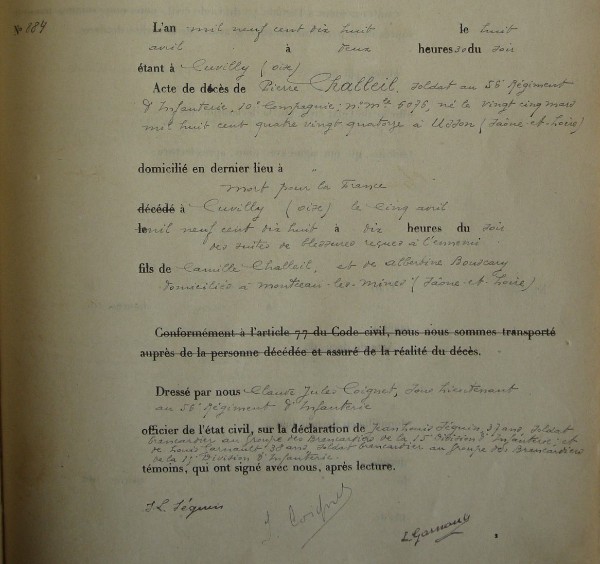 N° 184
L'an mil neuf cent dix huit le huit
avril à deux heures 30 du soir
étant à Cuvilly (oise)
Acte de décès de Pierre Challeil, soldat au 56e Régiment
d'Infanterie, 10e Compagnie; n° mle 6076, né le vingt cinq mars
mil huit cent quatre vingt quatorze à Uxson (Saône-et-Loire)
domicilié en dernier lieu à "
mort pour la France
décédé à Cuvilly (oise) le cinq avril
le mil neuf cent dix huit à dix heures du soir
des suites de blessures reçues à l'ennemi
fils de Camille Challeil, et de Albertine Bouscary
domiciliés à Montceau-les-Mines (Saône-et-Loire)
Conformément à l'article 77 du Code civil, nous nous sommes transporté
auprès de la personne décédée et assuré de la réalité du décès.
Dressé par nous Claude Jules Coignet, Sous Lieutenant
au 56e Régiment d'Infanterie
officier de l'état civil, sur la déclaration de Jean Louis Séguin, 37 ans, soldat
brancardier au groupe des Brancardiers de la 15e Division d'Infanterie; et
de Louis Garnault 38 ans, soldat brancardier au groupe des Brancardiers
de la 15e Division d'Infanterie.
témoins, qui ont signé avec nous, après lecture.
J L. Séguin
J. Coignet
L Garnault